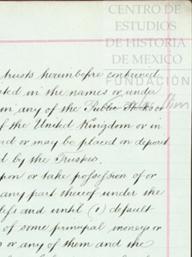 CENTRO DE
ESTUDIOS
DE HISTORIA
DE MEXICO
FUNDACIÓN
trusts hereinbefore contained
in the names or under
in any of the Public Stocks or
of the United Kingdom or in
or may be placed on deposit
d by the Trustees.
upon or take possession of or
any part thereof under the
less and until (1) default
of some principal moneys or
s or any of them and the